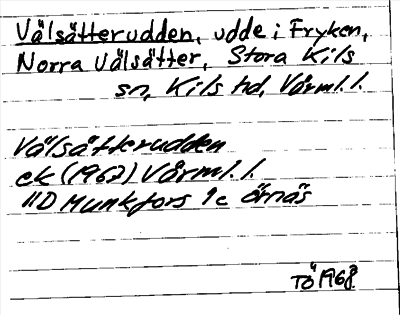 Välsätterudden, udde i Fryken,
Norra Välsätter, Stora Kils
sn, Kils hd, Värml. l.
Välsätterudden
ek (1962) Värml. l.
11D Munkfors 9c Örnäs
TÖ 1968